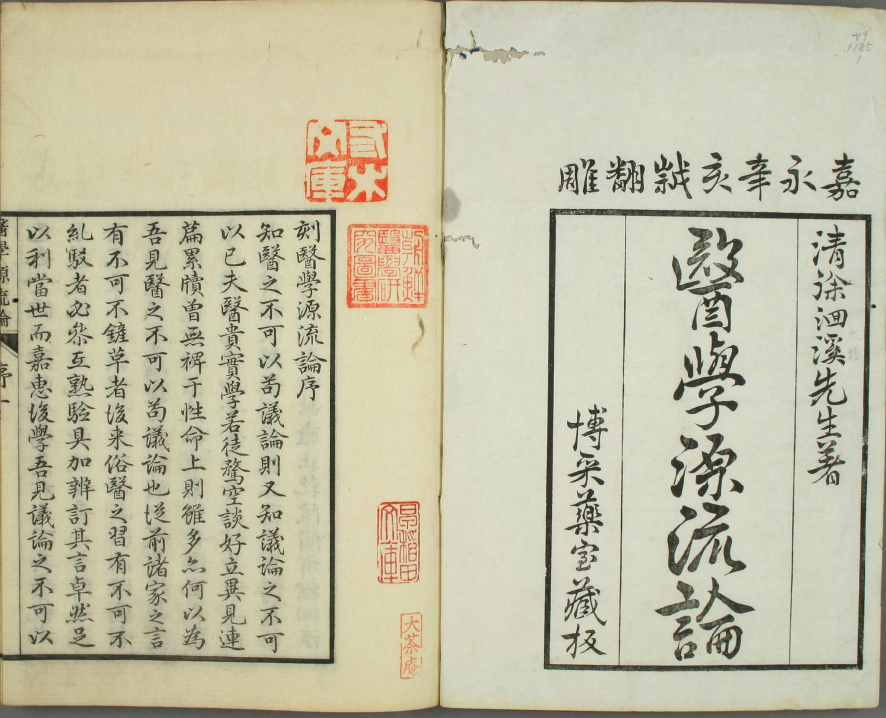 嘉永辛亥粼翻雕
清徐洄溪先生著
醫學源流論
博采藥室藏板
刻醫學源流論序
知醫之不可以苟議論則又知議論之不可
以已夫醫貴實學若徒騖空談好立異見連
篇累牘曽無裨于性命上則雖多亦何以為
吾見醫之不可以苟議論也從前諸家之言
有不可不鏟草者後来俗醫之習有不可不
糺駁者必叅互熟驗具加辨訂其言卓然足
以利當世而嘉惠後學吾見議論之不可以
醫學源流論
序
大茶庵